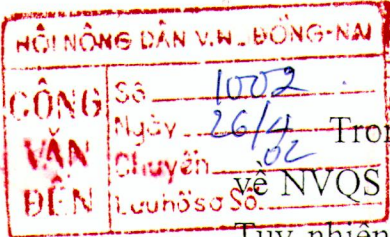 HỘI NÔNG DÂN V.N. ĐỒNG-NAI
CÔNG VĂN ĐẾN
Số 1002
Ngày 26/4/02
Chuyển
Lưu hồ sơ Số
Tron
về NVQS
Tuy nhiên